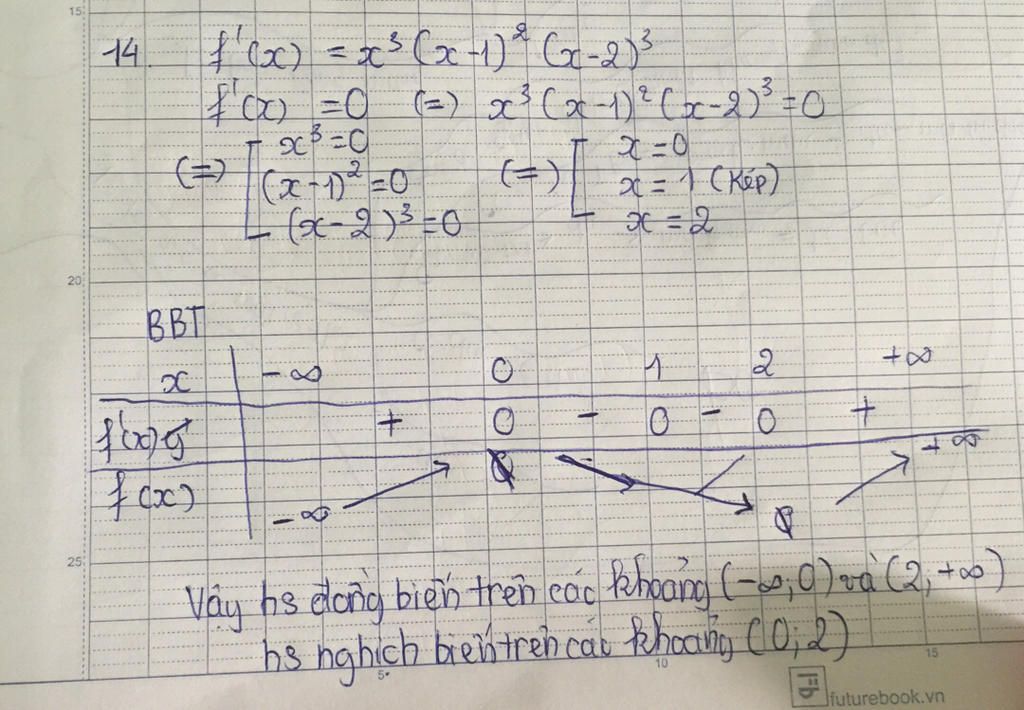 15
14. f'(x) = x³ (x-1)² (x-2)³
f'(x) = 0 (=) x³ (x-1)² (x-2)³ = 0
(=) [ x³ = 0 (=) [ x = 0
(x-1)² = 0 x = 1 (Kép)
(x-2)³ = 0 x = 2
20
BBT
x -∞ 0 1 2 +∞
f'(x) + 0 - 0 - 0 +
f(x) -∞ +∞
25
Vậy hs đồng biến trên các khoảng (-∞; 0) và (2; +∞)
hs nghịch biến trên các khoảng (0; 2)
5 10 15
futurebook.vn